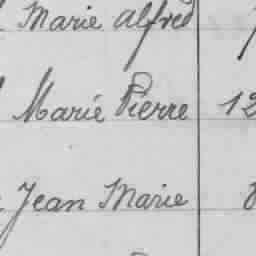 Marie Alfred
Marie Pierre 12
Jean Marie